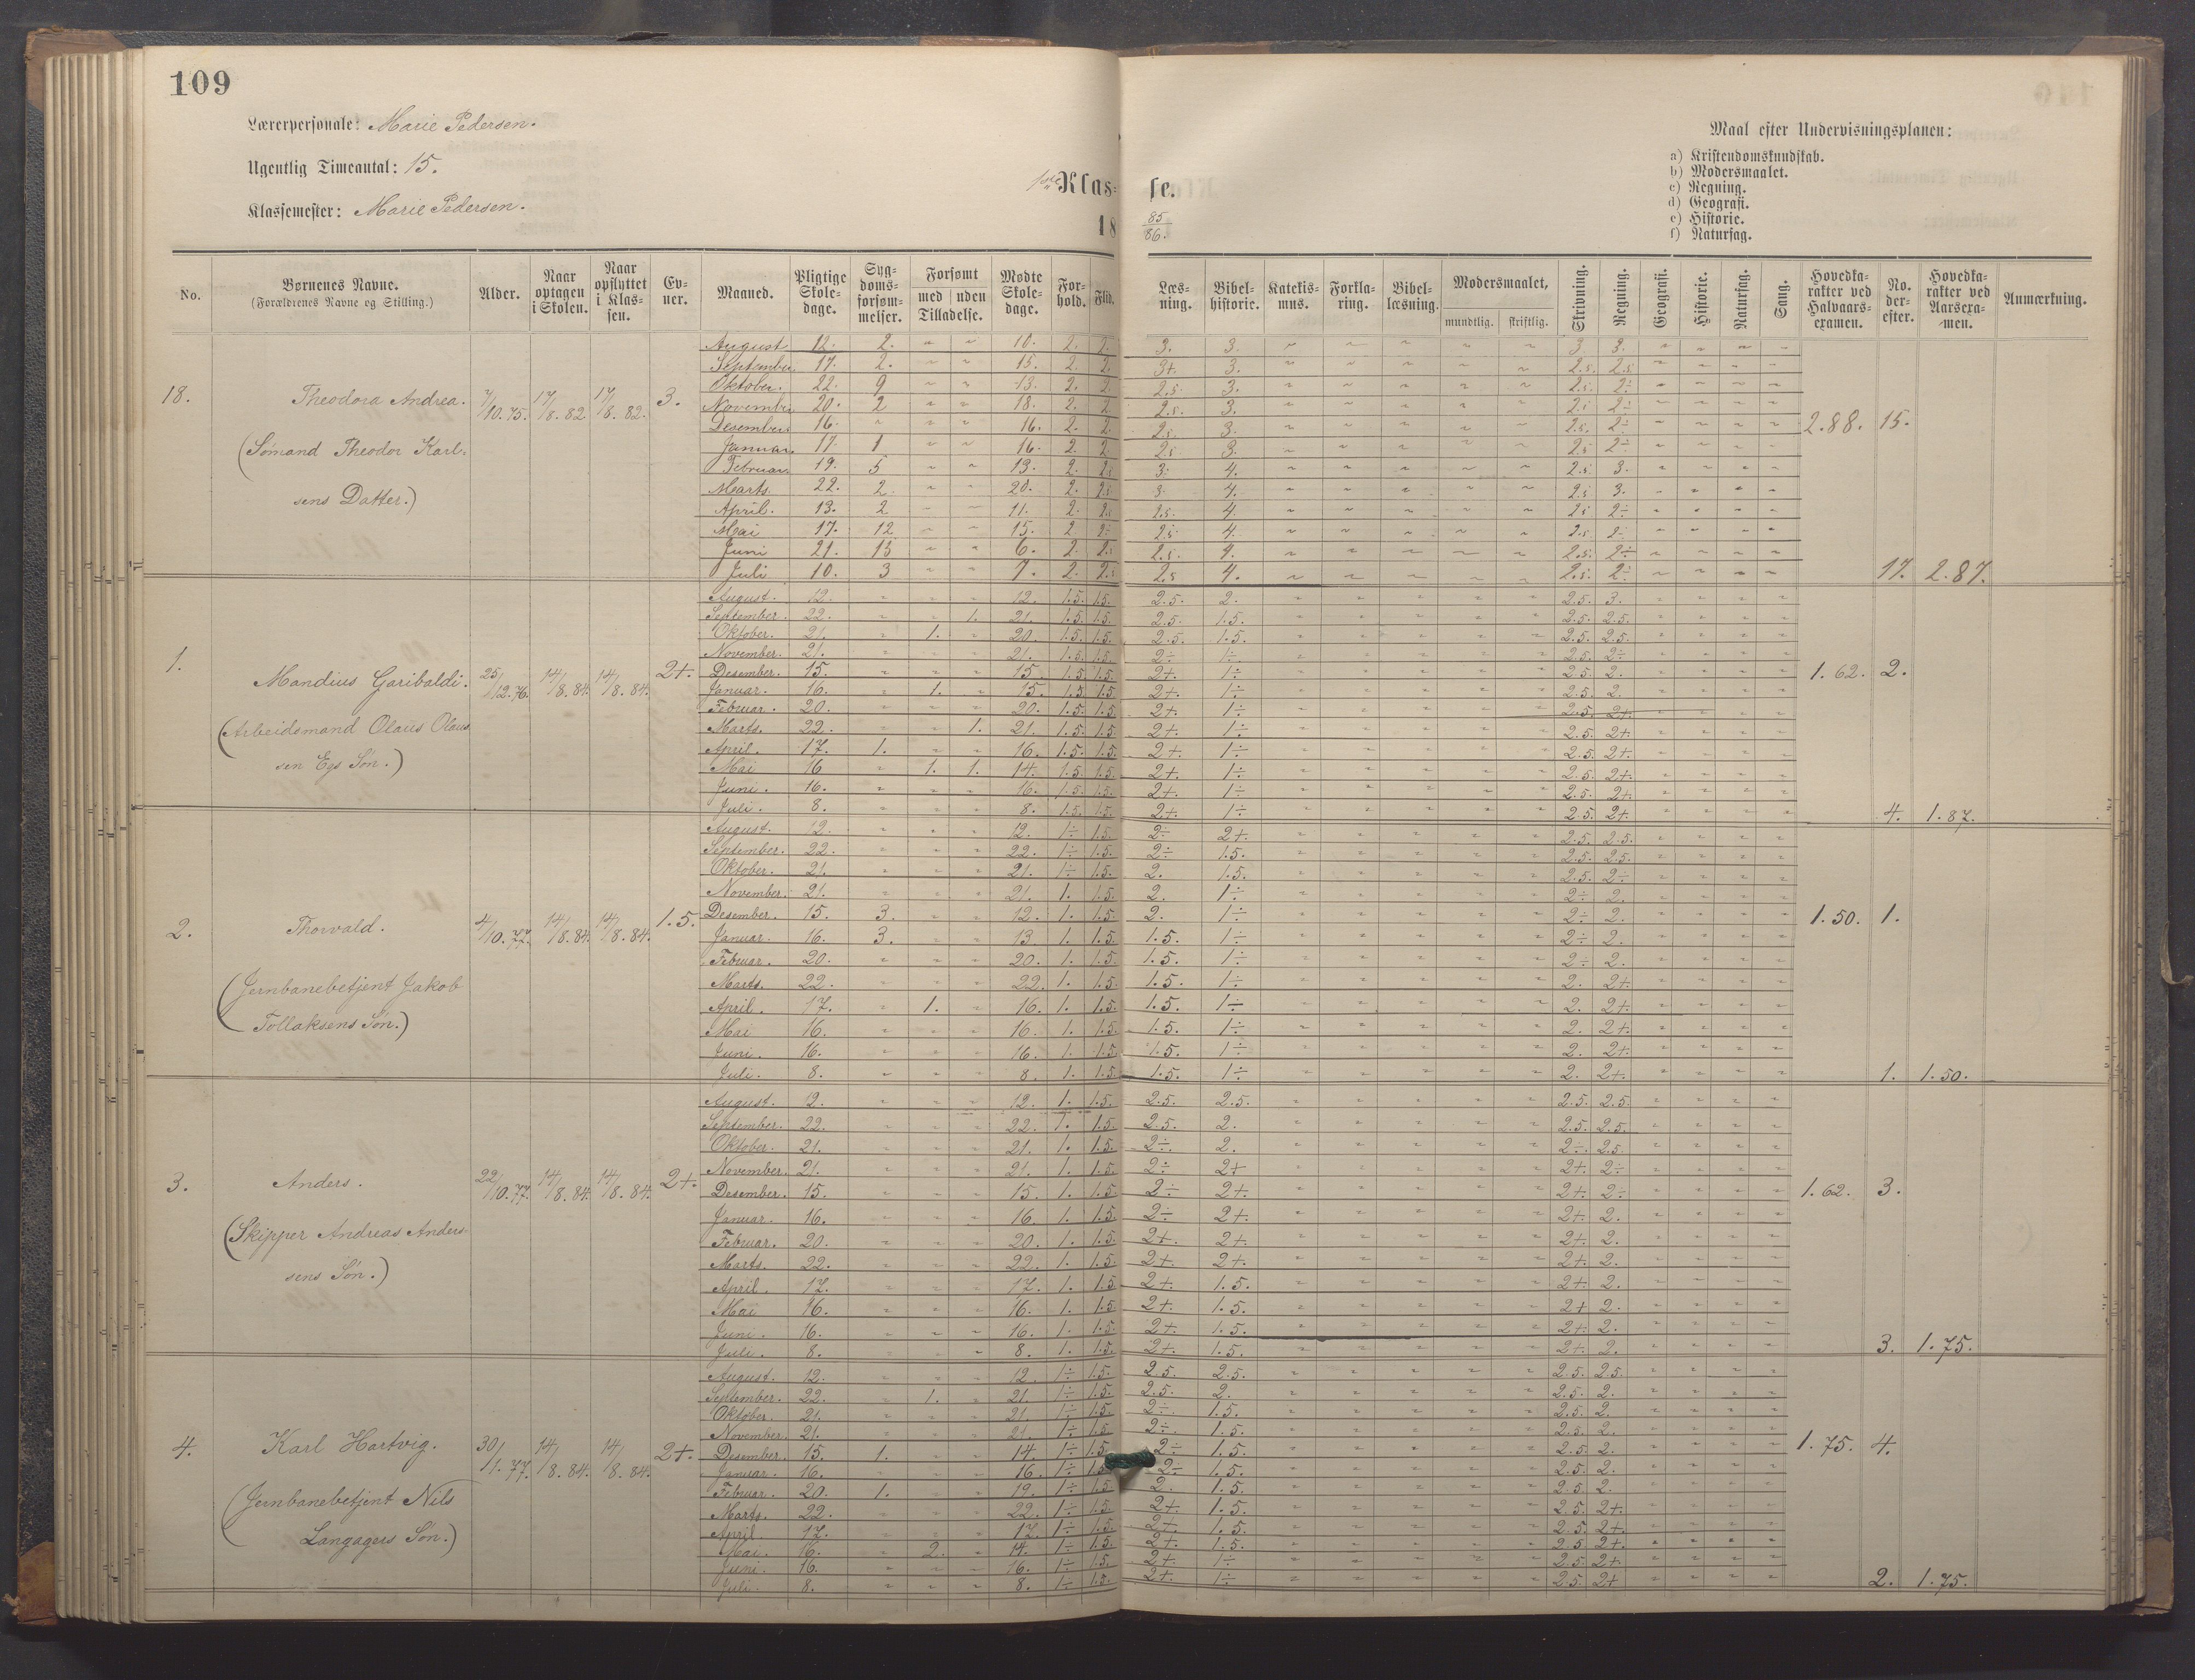 109
Lærerpersonale: Marie Pedersen.
Ugentlig Timeantal: 15.
Klassemester: Marie Pedersen.
1ste Klas=se.
18 85/86.
Maal efter Undervisningsplanen:
a) Kristendomskundskab.
b) Modersmaalet.
c) Regning.
d) Geografi.
e) Historie.
f) Naturfag.
No. | Børnenes Navne. (Forældrenes Navne og Stilling.) | Alder. | Naar optagen i Skolen. | Naar opflyttet i Klassen. | Evner. | Maaned. | Pligtige Skoledage. | Sygdomsforsømmelser. | Forsømt med Tilladelse. | uden Tilladelse. | Mødte Skoledage. | Forhold. | Flid. | Læsning. | Bibelhistorie. | Katekismus. | Forklaring. | Bibellæsning. | Modersmaalet, mundtlig. | skriftlig. | Skrivning. | Regning. | Geografi. | Historie. | Naturfag. | Sang. | Hovedkarakter ved Halvaarsexamen. | No. derefter. | Hovedkarakter ved Aarsexamen. | Anmærkning.
18. Theodora Andrea. 7/10.75. 17/8.82 17/8.82. 3. 2.88. 15.
(Sømand Theodor Karl=
sens Datter.)
August 12. 2. " " 10. 2. 2. 3. 3. 3. 3.
September 17. 2. " " 15. 2. 2. 3+ 3. 2.5. 2.5
Oktober. 22. 9 " " 13. 2. 2. 2.5 3. 2.5. 2÷
November 20. 2 " " 18. 2. 2. 2.5. 3. 2.5 2÷
Desember 16. " " " 16. 2. 2. 2.5. 3. 2.5. 2÷
Januar. 17. 1 " " 16. 2. 2. 2.5 3. 2.5 2÷
Februar. 19. 5 " " 13. 2. 3. 4. 2.5 3.
Marts. 22. 2. " " 20. 2. 3. 4. 2.5 3.
April. 13. 2 " " 11. 2. 2.5. 4. 2.5 2÷
Mai 17. 12 " " 15. 2 2.5. 4. 2.5 2÷
Juni 21. 13 " " 6. 2. 2.5. 4. 2.5. 2÷
Juli 10. 3 " " 7. 2. 2.5 4. 2.5. 2÷ 17. 2.87.
1. Mandius Garibaldi. 25/12.76. 14/8.84. 14/8.84. 2+. 1.62. 2.
(Arbeidsmand Olaus Olaus
sen Egs Søn.)
August. 12. " " " 12. 1.5. 1.5. 2.5. 2. 2.5. 3.
September. 22. " " 1. 21. 1.5. 1.5. 2.5. 1.5. 2.5. 2.5.
Oktober. 21. " 1. " 20. 1.5. 1.5. 2.5. 1.5. 2.5. 2.5.
November. 21. " " " 21. 1.5. 1.5. 2÷ 1÷ 2.5. 2÷
Desember. 15. " " " 15. 1.5. 1.5. 2+ 1÷ 2.5. 2.
Januar. 16. " 1. " 15. 1.5. 1.5 2+. 1÷ 2.5. 2.
Februar. 20. " " " 20. 1.5. 1.5. 2+. 1÷ 2.5. 2+.
Marts. 22. " " 1. 21. 1.5. 1.5. 2+. 1÷ 2.5. 2+.
April. 17. 1. " " 16. 1.5. 1.5. 2+. 1÷ 2.5. 2+.
Mai 16 " 1. 1. 14. 1.5. 1.5. 2+. 1÷ 2.5. 2+.
Juni. 16. " " " 16. 1.5. 1.5. 2+. 1÷ 2.5. 2+.
Juli. 8. " " " 8. 1.5. 1.5. 2+. 1÷ 2.5. 2+. 4. 1.87.
2. Thorvald. 4/10.77. 14/8.84. 14/8.84. 1.5. 1.50. 1.
(Jernbanebetjent Jakob
Tollaksens Søn.)
August. 12. " " " 12. 1÷ 1.5. 2÷ 2+. 2.5. 2.5.
September. 22. " " " 22. 1÷ 1.5. 2÷ 1.5. 2.5. 2.5.
Oktober. 21. " " " 21. 1÷ 1.5. 2. 1.5. 2.5. 2÷
November. 21. " " " 21. 1. 1.5. 2. 1÷ 2÷ 2.
Desember. 15. 3. " " 12. 1. 1.5. 2. 1÷ 2÷ 2.
Januar. 16. 3. " " 13. 1. 1.5. 1.5. 1÷ 2÷ 2.
Februar. 20. " " " 20. 1. 1.5. 1.5. 1÷ 2÷ 2.
Marts. 22. " " " 22. 1. 1.5. 1.5. 1÷ 2. 2+.
April. 17. " 1. " 16. 1. 1.5. 1.5. 1÷ 2. 2+.
Mai 16. " " " 16. 1. 1.5. 1.5. 1÷ 2. 2+.
Juni. 16. " " " 16. 1. 1.5. 1.5. 1÷ 2. 2+.
Juli. 8. " " " 8. 1. 1.5. 1.5. 1÷ 2. 2+. 1. 1.50.
3. Anders. 22/10.77. 14/8.84. 14/8.84. 2+. 1.62. 3.
(Skipper Andreas Anders=
sens Søn.)
August. 12. " " " 12. 1. 1.5. 2.5. 2.5. 2.5. 2.5.
September. 22. " " " 22. 1. 1.5. 2.5. 2. 2.5. 2.5.
Oktober. 21. " " " 21. 1. 1.5. 2÷ 2. 2÷ 2.5.
November. 21. " " " 21. 1. 1.5. 2÷ 2+ 2+. 2÷
Desember. 15. " " " 15. 1. 1.5. 2÷ 2+. 2+. 2÷
Januar. 16. " " " 16. 1. 1.5. 2÷ 2+. 2+. 2.
Februar. 20. " " " 20. 1. 1.5. 2+. 2+. 2+. 2.
Marts. 22. " " " 22. 1. 1.5. 2+. 2+. 2+. 2.
April. 17. " " " 17. 1. 1.5. 2+. 1.5. 2+. 2.
Mai 16. " " " 16. 1. 1.5. 2+. 1.5. 2+ 2.
Juni. 16. " " " 16. 1. 1.5. 2+. 1.5. 2+. 2.
Juli. 8. " " " 8. 1. 1.5. 2+. 1.5. 2+. 2. 3. 1.75.
4. Karl Hartvig. 30/1.77. 14/8.84. 14/8.84. 2+. 1.75. 4.
(Jernbanebetjent Nils
Langagers Søn.)
August. 12. " " " 12. 1÷ 1.5. 2.5. 2.5. 2.5. 2.5.
September. 22. " 1. " 21. 1÷ 1.5. 2.5. 2. 2.5. 2.
Oktober. 21. " " " 21. 1÷ 1.5. 2÷ 1.5. 2.5. 2.
November. 21. " " " 21. 1÷ 1.5. 2÷ 1.5. 2.5. 2.
Desember. 15. 1. " " 14. 1÷ 1.5. 2÷ 1.5. 2.5. 2.
Januar. 16. " " " 16. 1÷ 1.5 2÷ 1.5. 2.5. 2.
Februar. 20. 1. " " 19. 1÷ 1.5. 2. 1.5. 2.5. 2.
Marts. 22. " " " 22. 1÷ 1.5. 2+. 1.5. 2.5. 2+.
April. 17. " " " 17. 1÷ 1.5. 2+. 1.5. 2.5. 2+.
Mai. 16. " 2. " 14. 1÷ 1.5. 2+. 1.5. 2.5 2+.
Juni. 16. " " " 16. 1÷ 1.5. 2+. 1÷ 2.5. 2+.
Juli. 8. " " " 8. 1÷ 1.5. 2+. 1÷ 2.5. 2+ 2. 1.75.